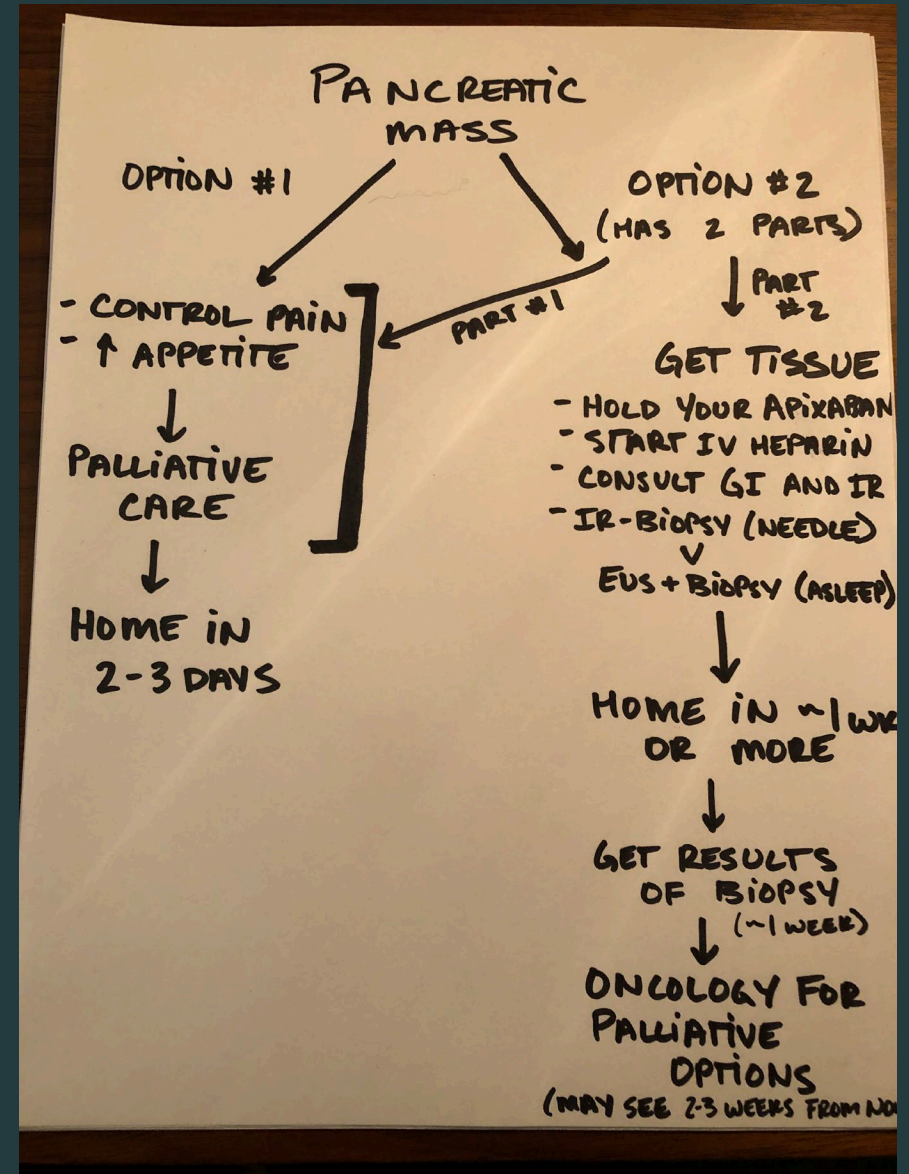 PANCREATIC
MASS
OPTION #1
- CONTROL PAIN
- ↑ APPETITE
PALLIATIVE
CARE
HOME IN
2-3 DAYS
PART #1
OPTION #2
(HAS 2 PARTS)
PART
#2
GET TISSUE
- HOLD YOUR APIXABAN
- START IV HEPARIN
- CONSULT GI AND IR
- IR-BIOPSY (NEEDLE)
V
EUS + BIOPSY (ASLEEP)
HOME IN ~1 WK
OR MORE
GET RESULTS
OF BIOPSY
(~1 WEEK)
ONCOLOGY FOR
PALLIATIVE
OPTIONS
(MAY SEE 2-3 WEEKS FROM NO